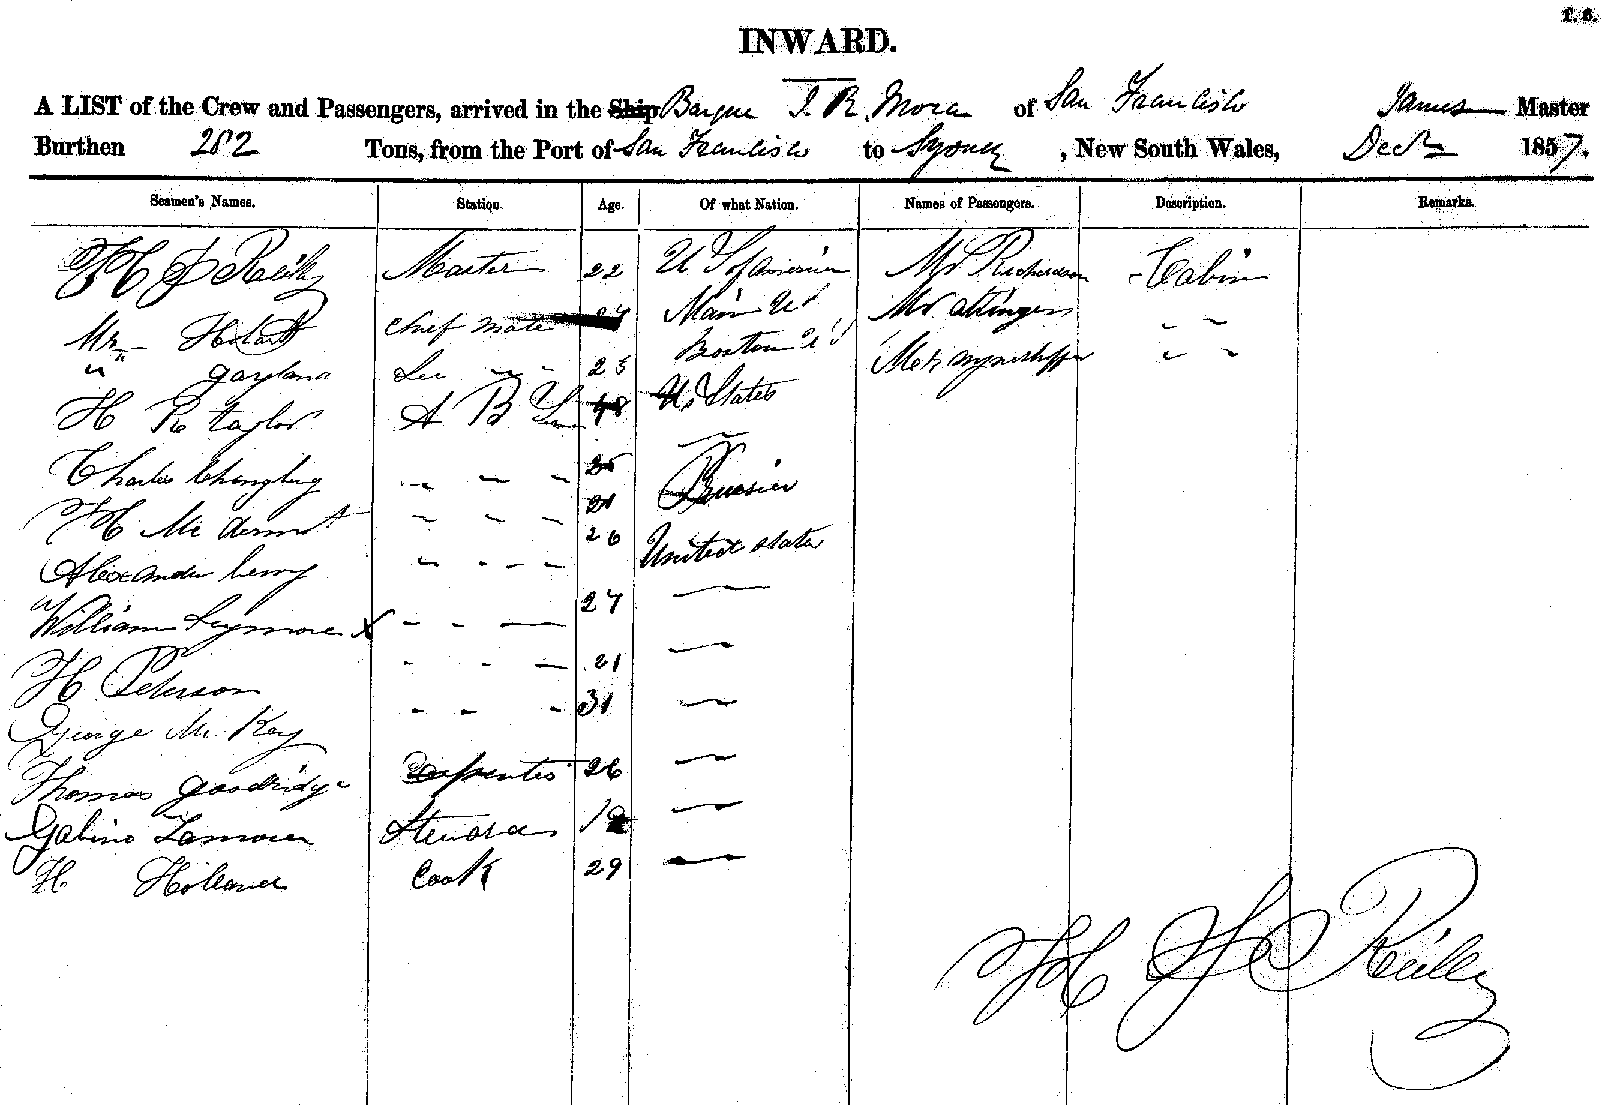 INWARD.
A LIST of the Crew and Passengers, arrived in the Ship Barque J. R. Mora of San Francisco James Master
Burthen 282 Tons, from the Port of San Francisco to Sydney, New South Wales, Decr 1857.
Seamen's Names. Station. Age. Of what Nation. Names of Passengers. Description. Remarks.
H Reilly Master 22 U S of America Mr Richardson Cabin
Mr Chief mate Main U S Mr " "
" 25 Boston U S " "
H R Taylor A B 48 U. States
Charles - - - 25 -
H Mc dermot - - - 21
Alexander berry - - - 26 United states
William Seymore X - - - 27 -
H Peterson - - - 21 -
George Mc Kay - - - 31 -
Thomas goodridge Carpenter 26 -
Gabino Steward -
H Holland Cook 29 -
H Reilly